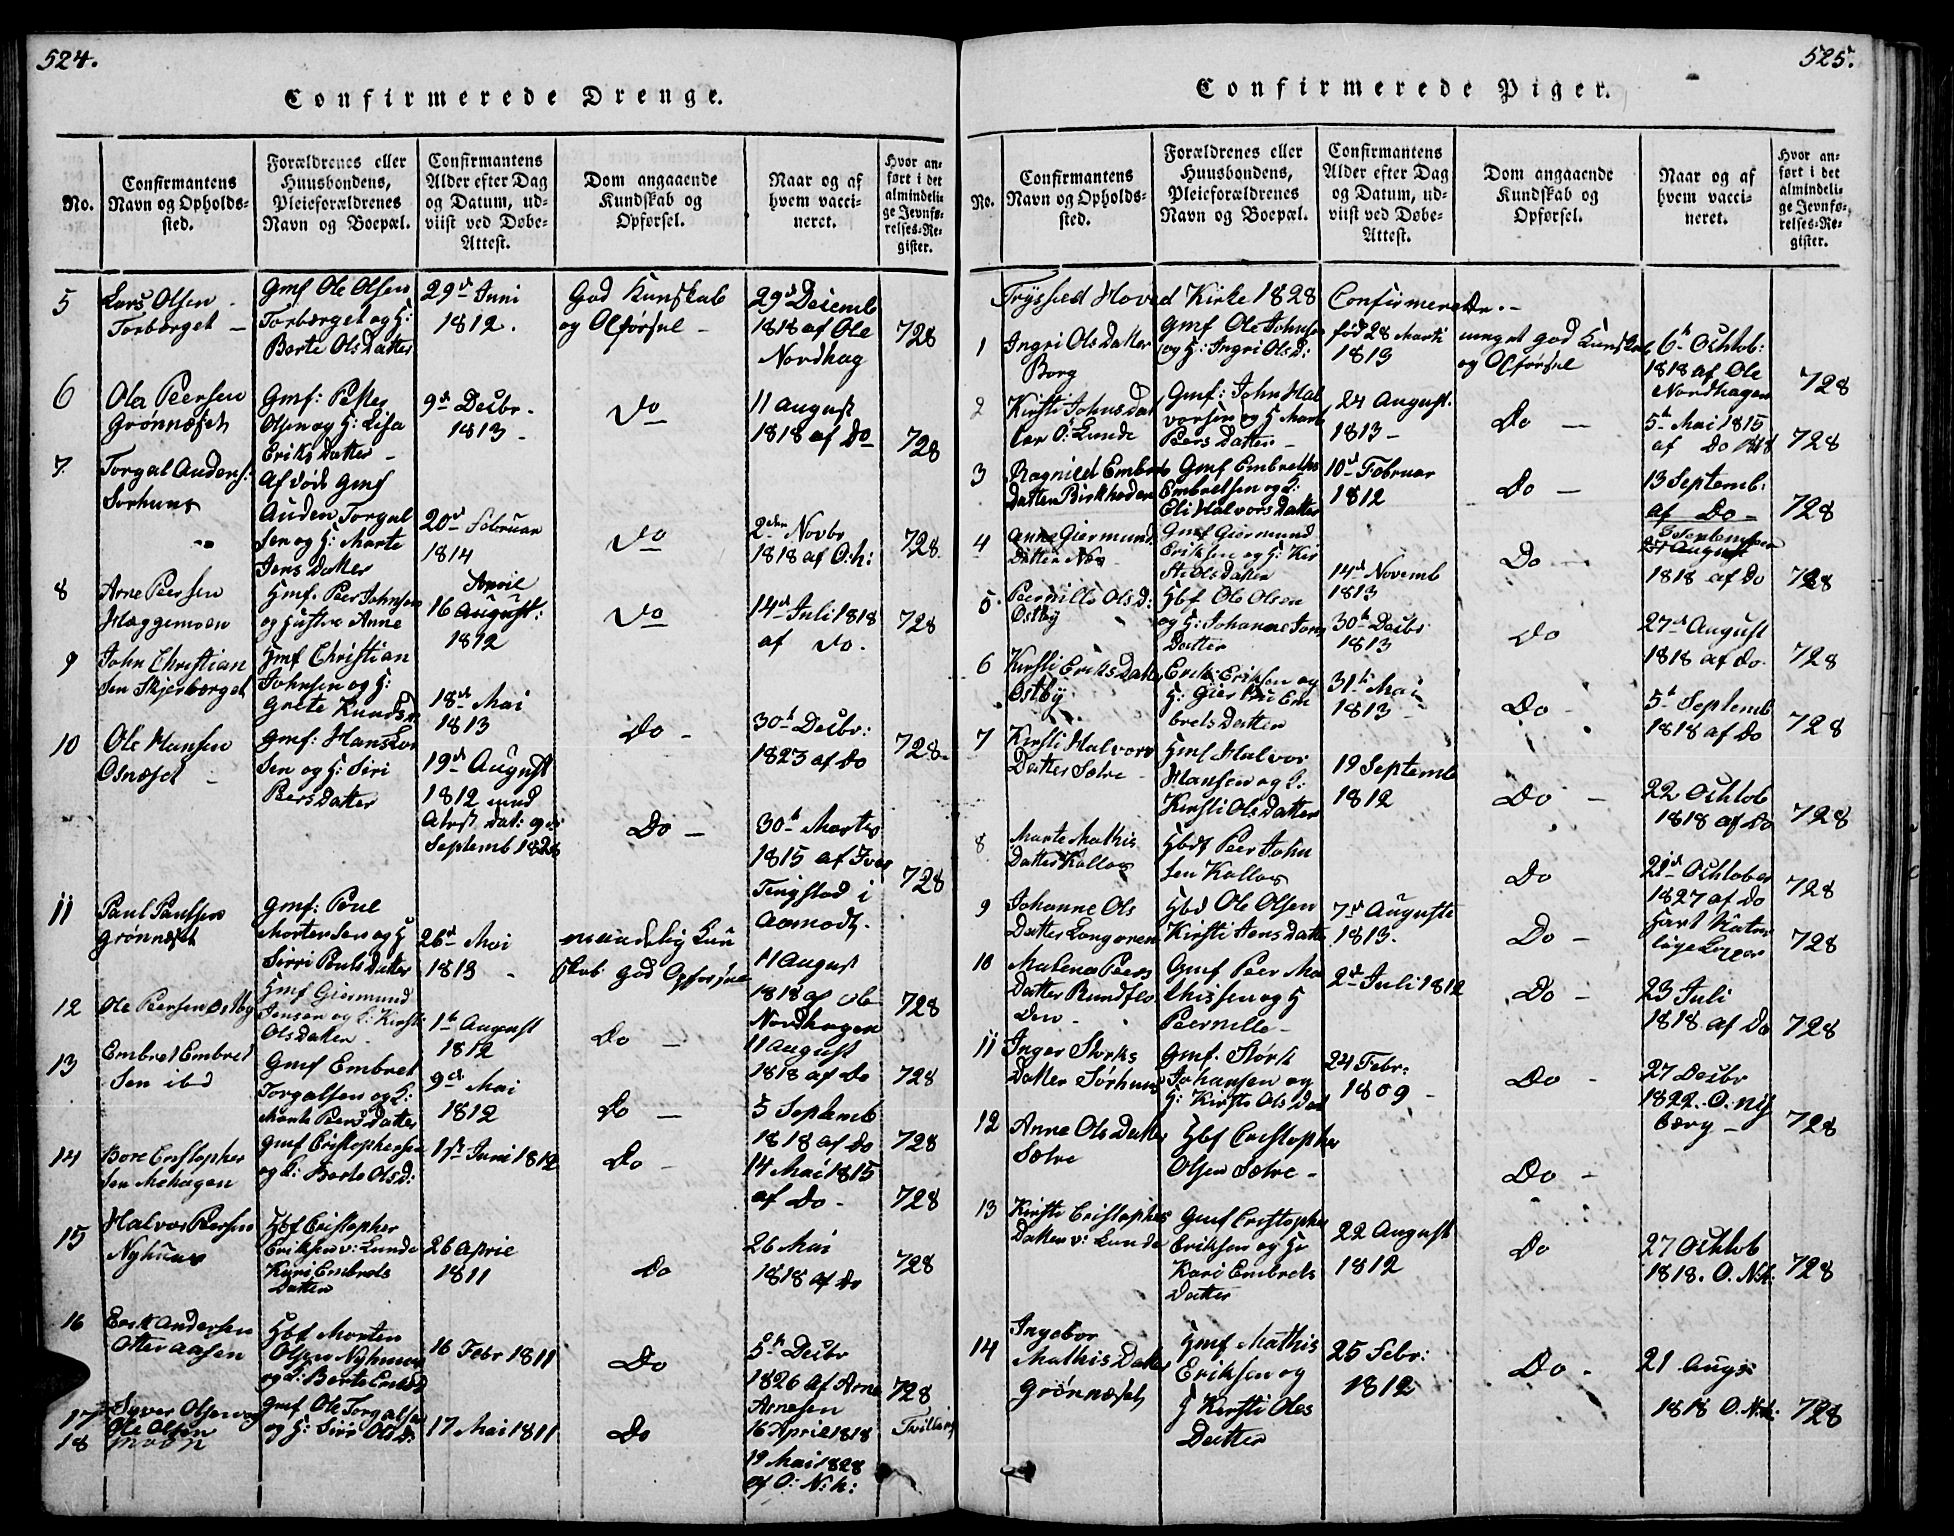 524.
Confirmerede Drenge.
No.
Confirmantens
Navn og Opholds-
sted.
Forældrenes eller
Huusbondens,
Pleieforældrenes
Navn og Boepæl.
Confirmantens
Alder efter Dag
og Datum, ud-
viist ved Døbe-
Attest.
Dom angaaende
Kundskab og
Opførsel.
Naar og af
hvem vacci-
neret.
Hvor an-
ført i det
almindeli-
ge Jevnfø-
relses-Re-
gister.
5
Lars Olsen
Torbærget
Gmf Ole Olsen
Torbærget og H:
Berte Olsdatter
29de Juni
1812.
God Kunskab
og Opførsel
29de Decemb
1818 af Ole
Nordhag
728
6
Ola Peersen
Grønnæset
Gmf: Petter
Olsen og H: Lisa
Eriks Datter
9de Decbr.
1813
Do
11 August
1818 af Do
728
7
Torgal Audens:
Sørhuus
Afdøde Gmf
Auden Torgal
sen og H: Marte
Jens Datter
20de Februar
1814
Do
2den Novbr
1818 af O.N:
728.
8
Arne Peersen
Hæggemoen
Hmf. Peer Johnsen
og Hustru Anne
April
16 August.
1812
Do
14de Juli 1818
af Do.
728
9
John Christian
sen Skjersbærget
Hmf Christian
Johnsen og H:
Grete Knudsd
18de Mai
1813
Do
30te Decbr:
1823 af Do
728
10
Ole Hansen
Osnæset
Gmf: Hans
sen og H: Siri
Peers Datter
19de August
1812 med
Attest dat:
Septemb 1828
Do
30te Marts
1815 af Iver
Tengstad i
Aamodt.
728
11
Paul Paulsen
Grønnæset
Gmf: Poul
Mortensen og H
Sirri Pouls Datter
26de Mai
1813
maadelig Kun
skab god Opførsel
11 August
1818 af Ole
Nordhagen
728
12
Ole Peersen Østby
Hmf Giermund
Jensen og H: Kirsti
Olsdatter
1te August
1812
Do
11 August
1818 af Do
728
13
Embret Embret
sen ibd
Gmf Embret
Torgalsen og H:
Marte Peersdatter
9de Mai
1812
Do
5 Septemb
1818 af Do
728
14
Bore Cristopher
sen Mohagen
Gmf Cristophersen
og H: Berte Olsd:
1ste Juni 1812
Do
14 Mai 1815
af Do
728
15
Halvor Peersen
Nyhuus
Hbf Cristopher
Eriksen v: Lunde
Kari Embrets
Datter
26 April
1811
Do
26 Mai
1818 af Do
728
16
Erik Andersen
Otteraasen
Hbf Morten
Olsen Nyhuus
og H: Berte
16 Febr 1811
Do
5te Decbr
1826 af Arne
Arnesen
728
17
18
Syver Olsen og
Ole Olsen
Moen
Gmf Ole Torgalsen
og H: Siri Olsd:
17 Mai 1811
Do
16 April 1818
19 Mai 1828
af O: N:h:
Tvilling
525.
Confirmerede Piger.
No.
Confirmantens
Navn og Opholds-
sted.
Forældrenes eller
Huusbondens,
Pleieforældrenes
Navn og Boepæl.
Confirmantens
Alder efter Dag
og Datum, ud-
viist ved Døbe-
Attest.
Dom angaaende
Kundskab og
Opførsel.
Naar og af
hvem vacci-
neret.
Hvor an-
ført i det
almindeli-
ge Jevnfø-
relses-Re-
gister.
Trysild Hoved Kirke 1828 Confirmerede.
1
Ingri Olsdatter
Borg
Gmf Ole Johnsen
og H: Ingri Olsd:
fød 28 Marti
1813
meget god Kunskab
og Opførsel
6te Octob:
1818 af Ole
Nordhagen
728
2
Kirsti Johnsdat
ter Ø: Lunde
Gmf: John Hal
vorsen og H Marte
Peers Datter
24 August.
1813
Do
5te Mai 1815
af Do
728
3
Ragnild Embrets
Datter Birkheden
Gmf Embreth
Embretsen og H:
Eli Halvors Datter
10de Februar
1812
Do
13 Septemb:
af Do
728
4
Anne Giermunds
Datter Næs
Gmf Giermund
Eriksen og H: Kir
sti Olsdatter
14de Novemb
1813
Do
September
August
1818 af Do
728
5
Peernille Olsd:
Østby
Hbf Ole Olsen
og H: Johanne Jons
Datter
30te Decbr
1813
Do
27de August
1818 af Do.
728
6
Kirsti Eriks Datter
Østby
Erik Eriksen og
H: Giertru Em
brets Datter
31te Mai
1813
Do
5te Septemb
1818 af Do
728
7
Kirsti Halvors
Datter Sætre
Hmf Halvor
Hansen og H:
Kirsti Ols Datter
19 Septemb
1812
Do
22 Octob
1818 af Do
728
8
Marte Mathis
Datter Kollos
Hbdf Peer John
sen Kollos
Do
21de October
1827 af Do
728
9
Johanne Ols
Datter Langøren
Hbd Ole Olsen
Kirsti Jens Datter
7de Auguste
1813.
Do
havt Natur
lige Koper
728
10
Malene Peers
Datter Rundflo
en
Gmf Peer Ma
thissen og H
Peernille
2de Juli 1812
Do
23 Juli
1818 af Do
728
11
Inger Størks
Datter Sørhuus
Gmf. Størk
Johansen og
H: Kirsti Olsdat
24 Febr:
1809
Do
27 Decbr
1822. O. Ny
berg
728
12
Anne Olsdatter
Sætre
Hbf Cristopher
Olsen Sætre
Do
13
Kirsti Cristophers
Datter v: Lunde
Gmf Cristopher
Eriksen og H:
Kari Embrets
Datter
22 August
1812
Do
27 Octob
1818. O. N.h:
728
14
Ingebor
Mathis Datter
Grønnæset
Hmf Mathis
Eriksen og
H Kirsti Oles
Datter
25 Febr:
1812
Do
21 Augs
1818 O. N.h:
728